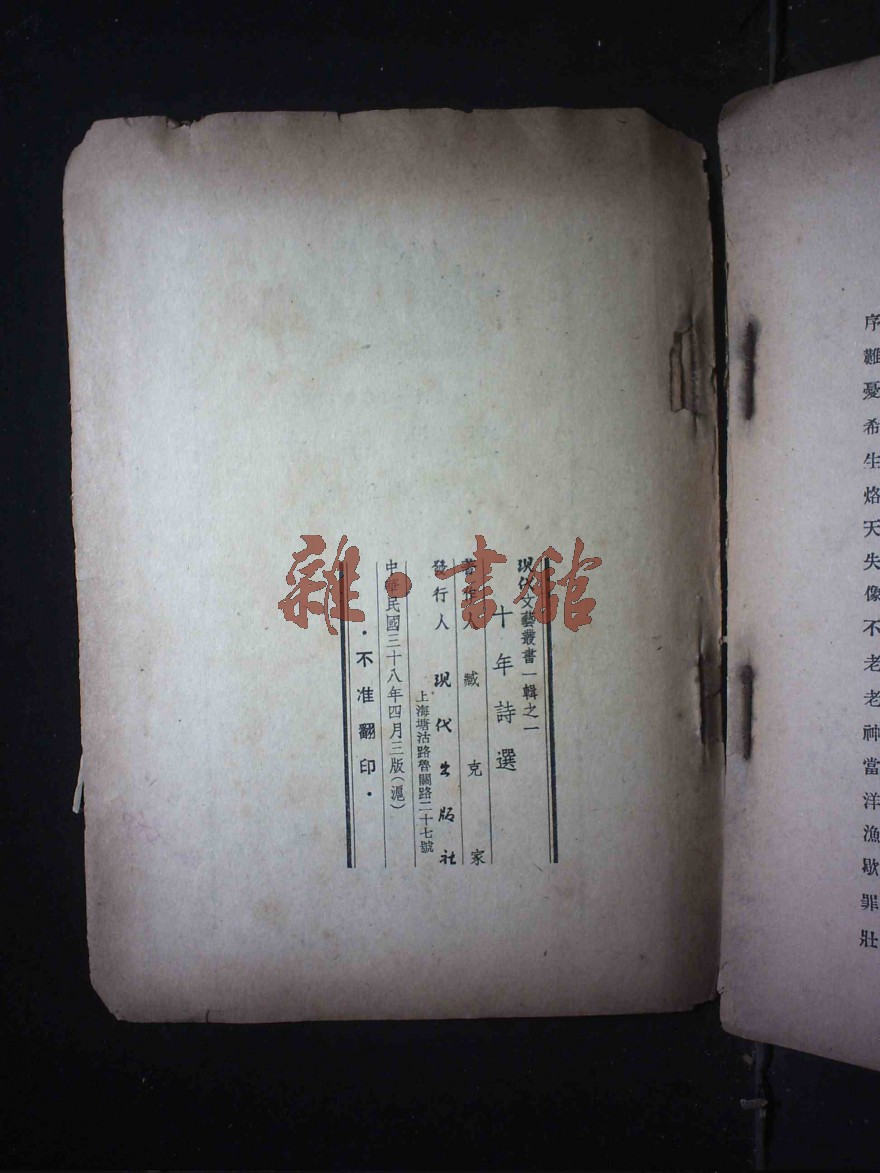 現代文藝叢書一輯之一
十年詩選
著作人 臧克家
發行人 現代出版社
上海塘沽路魯關路二十七號
中華民國三十八年四月三版(滬)
·不准翻印·
雜·書館
序
難
憂
希
生
烙
天
失
像
不
老
老
神
當
洋
漁
歇
罪
壯